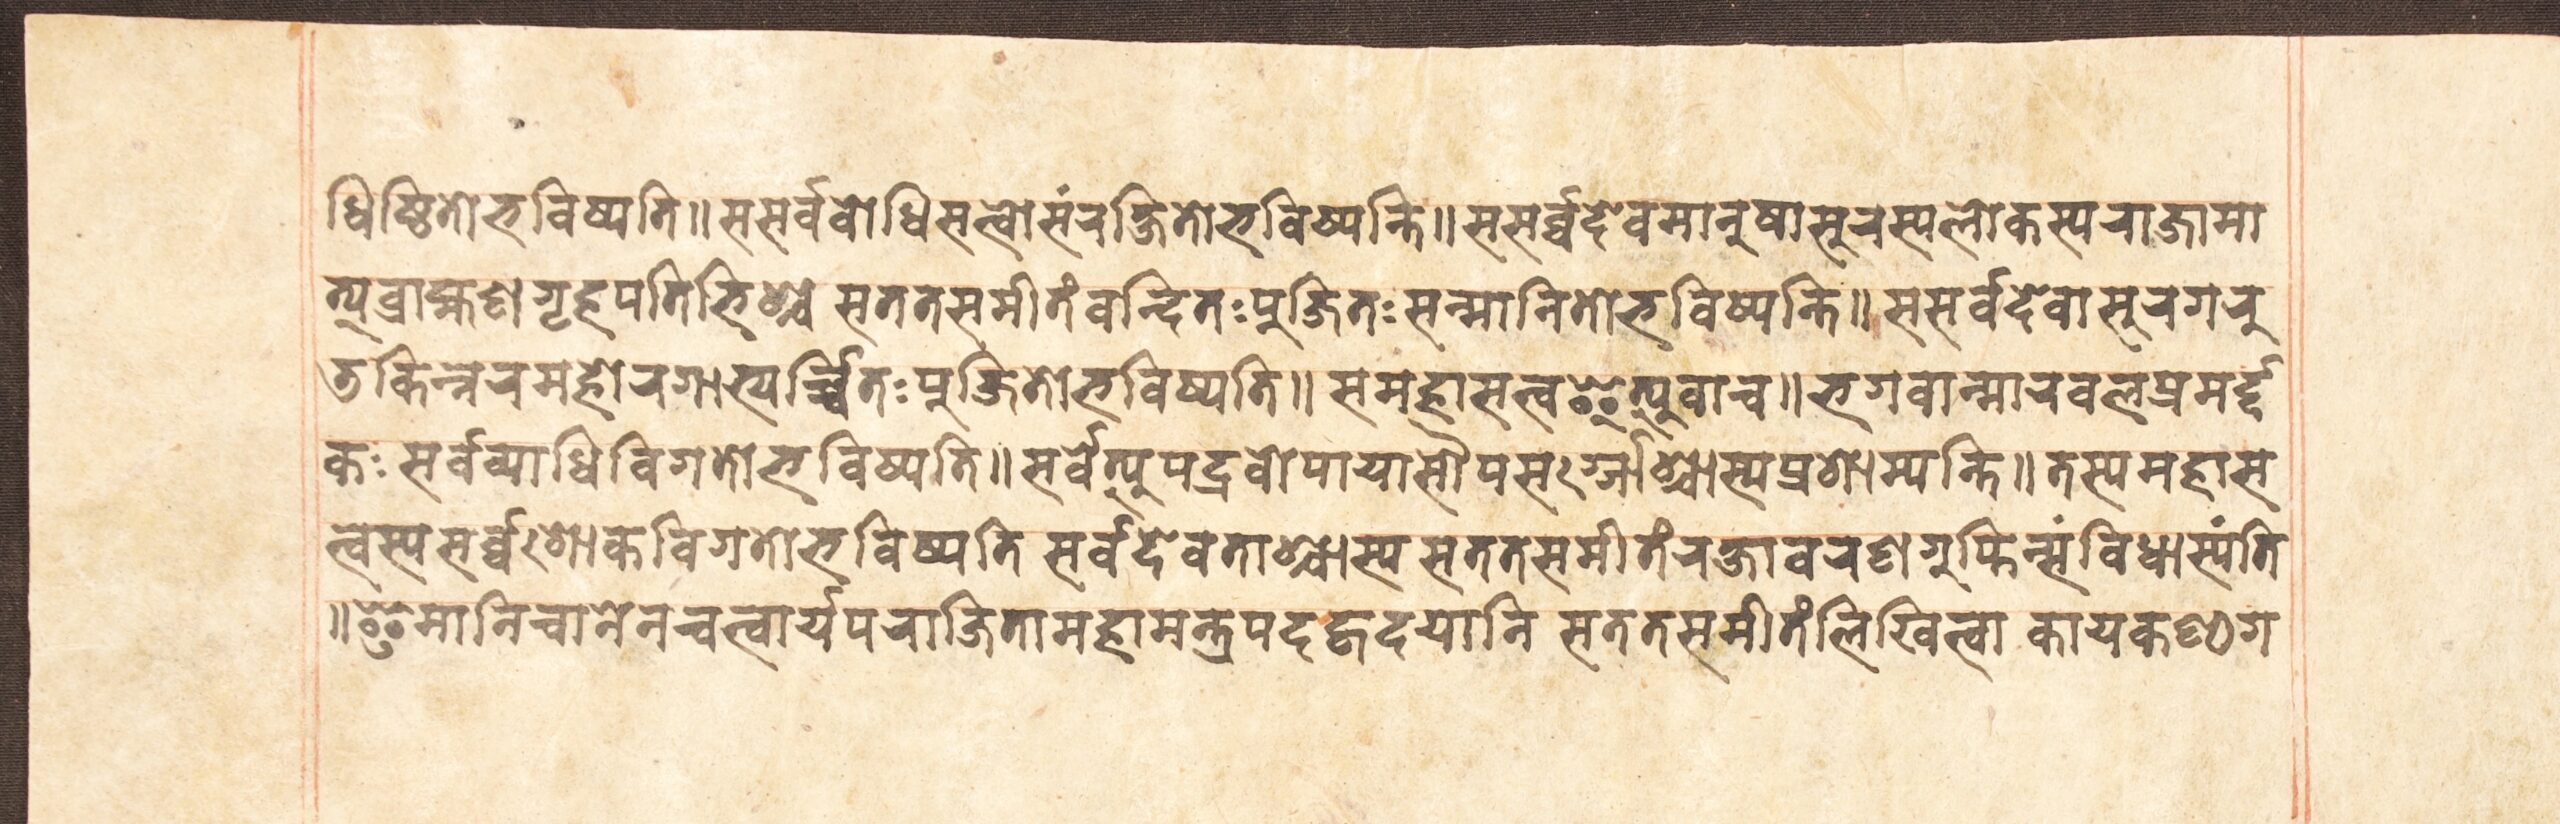 धिष्ठितो भविष्यति ॥ स सर्वबोधिसत्वो संरक्षितो भविष्यन्ति ॥ स सर्व्वदेवमानुषासूरस्य लोकस्य राजामा
त्य् ब्राह्मण गृहपतिभिश्च सततसमीतं वन्दितः पुजितः सन्मानितो भविष्यन्ति ॥ स सर्वदेवासूरगरु
ड किन्नरमहोरगाभ्यर्च्चितः पुजितो भविष्यति ॥ स महासत्व इत्युवाच ॥ भगवान्मारवलप्रमर्द्द
कः सर्वव्याधिविगतो भविष्यति ॥ सर्वेत्युपद्रवोपायासौपसर्ग्गाश्चास्य प्रशाम्यन्ति ॥ तस्य महास
त्वस्य सर्व्वशोकविगतो भविष्यति सर्वदेवताश्चास्य सततसमीतं रक्षावरणगुप्तिन्सं विधास्यंति
॥ इमानि चानेन चत्वार्यपराजितामहामन्त्रपदहृदयानि सततसमीतं लिखित्वा कायकण्ठग